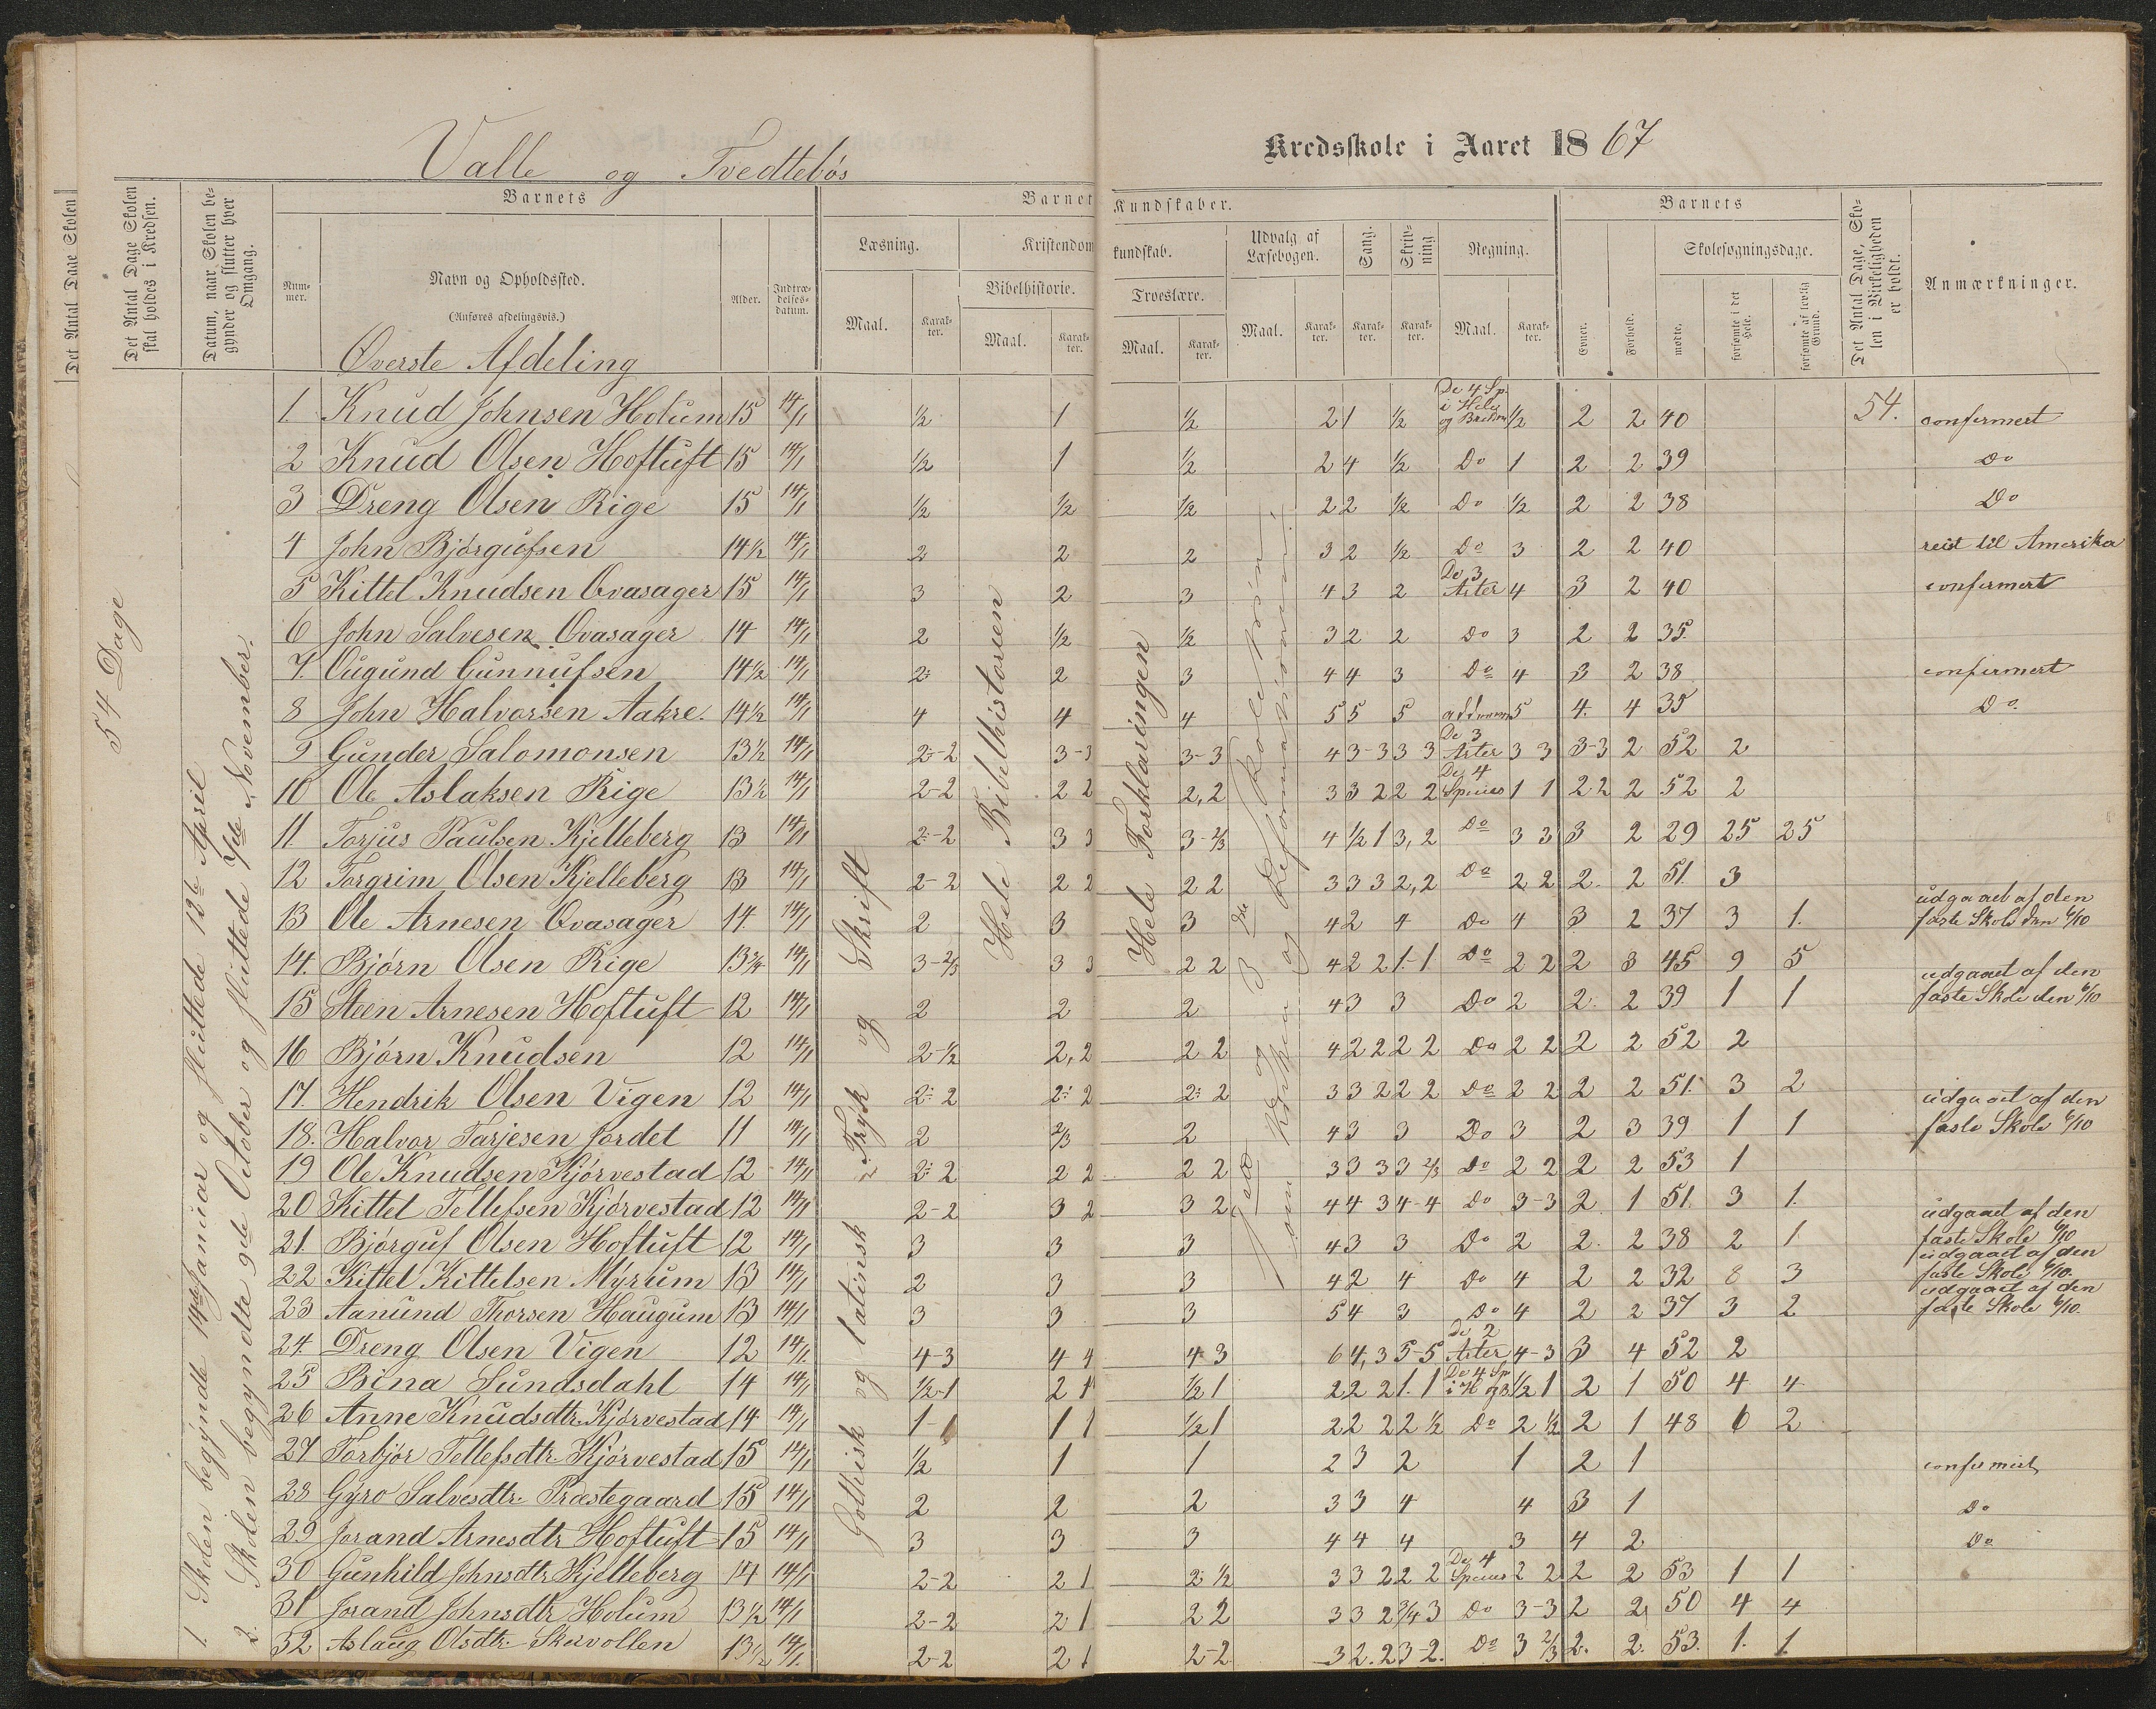 Valle og Tvedtebøs
Kredsskole i Aaret 1867
Det Antal Dage Skolen
Det Antal Dage Skolen skal holdes i Kredsen.
Datum, naar Skolen begynder og slutter hver Omgang.
Barnets
Nummer.
Navn og Opholdssted.
(Anføres afdelingsvis.)
Alder.
Indtrædelsesdatum.
Barnets Kundskaber.
Læsning.
Maal.
Karakter.
Kristendomskundskab.
Bibelhistorie.
Maal.
Karakter.
Troeslære.
Maal.
Karakter.
Udvalg af Læsebogen.
Maal.
Karakter.
Sang.
Karakter.
Skrivning.
Karakter.
Regning.
Maal.
Karakter.
Barnets
Evner.
Forhold.
Skolesøgningsdage.
mødte.
forsømte i det Hele.
forsømte af lovlig Grund.
Det Antal Dage, Skolen i Virkeligheden er holdt.
Anmærkninger.
54 Dage
1. Skolen begyndte 14de Januar og sluttede 12te April
2. Skolen begyndte 9de October og sluttede 7de November.
Gothisk og latinsk Tryk og Skrift
Hele Bibelhistorien
Hele Forklaringen
Øverste Afdeling
1. Knud Johnsen Holum 15 14/1 1/2 1 1/2 2 1 1/2 De 4 Sp. i Hele og Brøken 1/2 2 2 40 54. confirmert
2 Knud Olsen Hoftuft 15 14/1 1/2 1 1/2 2 4 1/2 Do 1 2 2 39 Do
3 Dreng Olsen Rige 15 14/1 1/2 1/2 1/2 2 2 1/2 Do 1/2 2 2 38 Do
4 John Bjørgufsen 14 1/2 14/1 2 2 2 3 2 1/2 Do 3 2 2 40 reist til Amerika
5 Kittel Knudsen Ovasager 15 14/1 3 2 3 4 3 2 De 3 Arter 4 3 2 40 confirmert
6 John Salvesen Ovasager 14 14/1 2 1/2 1/2 3 2 2 Do 3 2 2 35.
7. Ougund Gunnufsen 14 1/2 14/1 2 2 3 4 4 3 Do 4 3 2 38 confirmert
8 John Halvorsen Aakre. 14 1/2 14/1 4 4 4 5 5 5 5 4. 4 35 Do.
9 Gunder Salomonsen 13 1/2 14/1 2-2 3-3 3-3 4 3-3 3 3 De 3 Arter 3 3 3-3 2 52 2
10 Ole Aslaksen Rige 13 1/2 14/1 2-2 2 2 2,2 3 3 2 2 2 De 4 Species 1 1 2 2 2 52 2
11. Torjus Paulsen Kjelleberg 13 14/1 2-2 3 3 3-2/3 4 1/2 1 3,2 Do 3 3 3 2 29 25 25
12 Torgrim Olsen Kjelleberg 13 14/1 2-2 2 2 2 2 3 3 3 2,2 Do 2 2 2. 2 51. 3
13 Ole Arnesen Ovasager 14. 14/1 2 3 3 4 2 4 Do 4 3 2 37 3 1. udgaaet af den faste Skole den 6/10
14. Bjørn Olsen Rige 13 3/4 14/1 3-2/3 3 3 2 2 4 2 2 1-1 Do 2 2 2 3 45 9 5
15 Steen Arnesen Hoftuft 12 14/1 2 2 2 4 3 3 Do 2 2. 2 39 1 1 udgaaet af den faste Skole den 6/10
16 Bjørn Knudsen 12 14/1 2-1/2 2,2 2 2 4 2 2 2 2 Do 2 2 2 2 52 2
17. Hendrik Olsen Vigen 12 14/1 2 2 2 2 2 2 3 3 2 2 2 Do 2 2 2 2 51. 3 2
18. Halvor Tarjesen Jordet 11 14/1 2 2/3 2 4 3 3 Do 3 2 3 39 1 1 udgaaet af den faste Skole 6/10
19 Ole Knudsen Kjørvestad 12 14/1 2 2 2 2 2 2 3 3 3 3 2/3 Do 2 2 2 2 53 1
20 Kittel Tellefsen Kjørvestad 12 14/1 2-2 3 2 3 2 4 4 3 4-4 Do 3-3 2. 1 51. 3 1.
21. Bjørguf Olsen Hoftuft 12 14/1 3 3 3 4 3 3 Do 2 2. 2 38 2 1. udgaaet af den faste Skole 6/10
22 Kittel Kittelsen Myrum 13 14/1 2 3 3 4 2 4 Do 4 2 2 32 8 3 udgaaet af den faste Skole 6/10.
23 Aanund Thorsen Haugum 13 14/1 3 3 3 5 4 3 Do 4 2 2 37 3 2 udgaaet af den faste Skole 6/10.
24. Dreng Olsen Vigen 12 14/1. 4-3 4 4 4 3 6 4,3 5-5 De 2 Arter 4-3 3 4 52 2
25 Bina Sundsdahl 14 14/1 1/2-1 2 1 1/2 1 2 2 2 1. 1 De 4 Sp i H og B 1/2 1 2 1 50 4 4
26 Anne Knudsdtr. Kjørvestad 14 14/1 1-1 1 1 1/2 1 2 2 2 2 1/2 Do 2 1/2 2 1 48 6 2
27 Torbjør Tellefsdtr. Kjørvestad 15 14/1 1/2 1 1 2 3 2 1 2 1 confirmert
28 Gyro Salvesdtr. Præstegaard 15 14/1 2 2 2 3 3 4 4 3 1 Do
29 Jorand Arnesdtr Hoftuft 15 14/1 3 3 3 4 4 4 3 4 2 Do
30 Gunhild Johnsdtr Kjelleberg 14 14/1 2-2 2 1 2 1/2 3 3 2 2 2 De 4 Species 2 2 2 2 53 1 1
31 Jorand Johnsdtr Holum 13 1/2 14/1 2-2 2 1 2 2 3 3 2 3/4 3 Do 3-3 2 2 50 4 4
32 Aslaug Olsdtr. Skovollen 13 1/2 14/1. 2-2 2 1 2-2 3 2. 2 3-2. Do 3 2/3 2. 2. 53. 1. 1